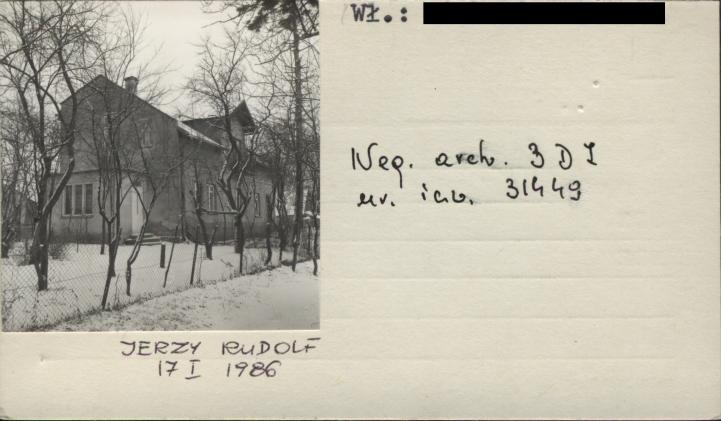 WŁ.:
Neg. arch. 3 D I
nr. inw. 31449
JERZY RUDOLF
17 I 1986